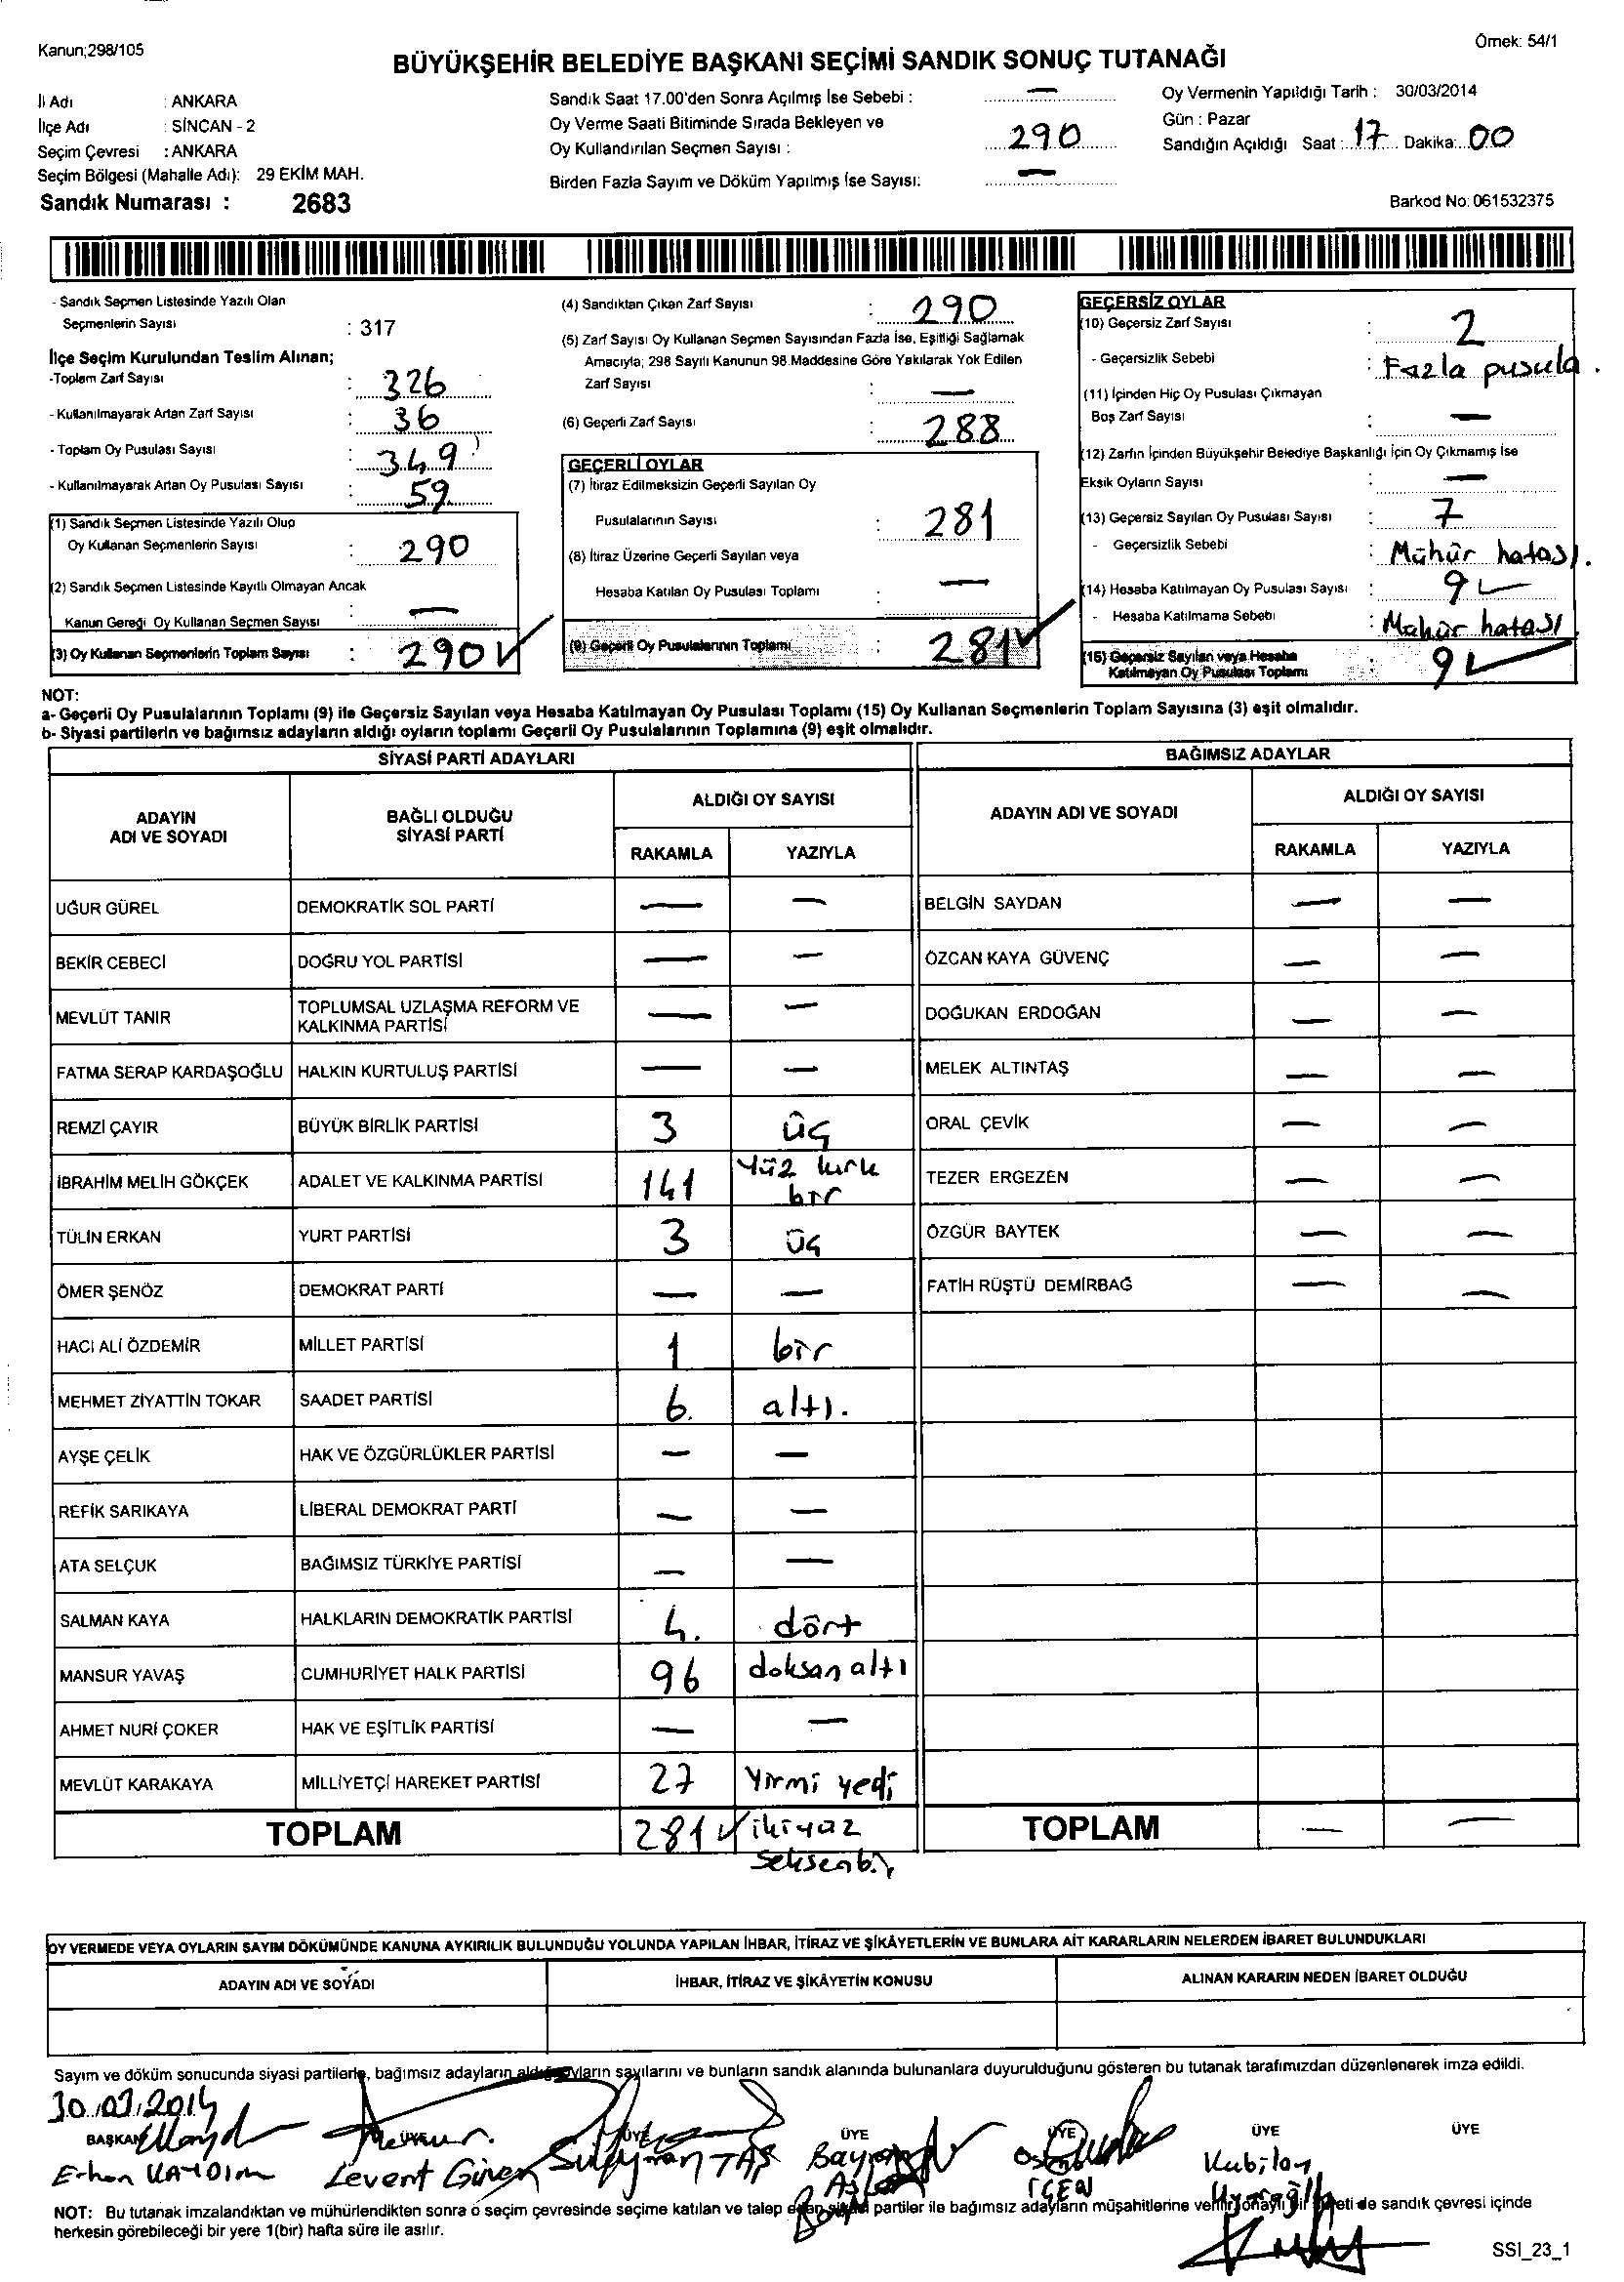 Kanun;298/105
Örnek: 54/1
BÜYÜKŞEHİR BELEDİYE BAŞKANI SEÇİMİ SANDIK SONUÇ TUTANAĞI
İl Adı : ANKARA
İlçe Adı : SİNCAN - 2
Seçim Çevresi : ANKARA
Seçim Bölgesi (Mahalle Adı): 29 EKİM MAH.
Sandık Numarası : 2683
Sandık Saat 17.00'den Sonra Açılmış İse Sebebi : —
Oy Verme Saati Bitiminde Sırada Bekleyen ve
Oy Kullandırılan Seçmen Sayısı : 290
Birden Fazla Sayım ve Döküm Yapılmış İse Sayısı: —
Oy Vermenin Yapıldığı Tarih : 30/03/2014
Gün : Pazar
Sandığın Açıldığı Saat : 17 Dakika: 00
Barkod No: 061532375
- Sandık Seçmen Listesinde Yazılı Olan
Seçmenlerin Sayısı : 317
İlçe Seçim Kurulundan Teslim Alınan;
-Toplam Zarf Sayısı : 326
- Kullanılmayarak Artan Zarf Sayısı : 36
- Toplam Oy Pusulası Sayısı : 349
- Kullanılmayarak Artan Oy Pusulası Sayısı : 59
(1) Sandık Seçmen Listesinde Yazılı Olup
Oy Kullanan Seçmenlerin Sayısı : 290
(2) Sandık Seçmen Listesinde Kayıtlı Olmayan Ancak
Kanun Gereği Oy Kullanan Seçmen Sayısı : —
(3) Oy Kullanan Seçmenlerin Toplam Sayısı : 290
(4) Sandıktan Çıkan Zarf Sayısı : 290
(5) Zarf Sayısı Oy Kullanan Seçmen Sayısından Fazla İse, Eşitliği Sağlamak
Amacıyla; 298 Sayılı Kanunun 98.Maddesine Göre Yakılarak Yok Edilen
Zarf Sayısı : —
(6) Geçerli Zarf Sayısı : 288
GEÇERLİ OYLAR
(7) İtiraz Edilmeksizin Geçerli Sayılan Oy
Pusulalarının Sayısı : 281
(8) İtiraz Üzerine Geçerli Sayılan veya
Hesaba Katılan Oy Pusulası Toplamı : —
(9) Geçerli Oy Pusulalarının Toplamı : 281
GEÇERSİZ OYLAR
(10) Geçersiz Zarf Sayısı : 2
- Geçersizlik Sebebi : Fazla pusula.
(11) İçinden Hiç Oy Pusulası Çıkmayan
Boş Zarf Sayısı : —
(12) Zarfın İçinden Büyükşehir Belediye Başkanlığı İçin Oy Çıkmamış İse
Eksik Oyların Sayısı : —
(13) Geçersiz Sayılan Oy Pusulası Sayısı : 7
- Geçersizlik Sebebi : Mühür hatası.
(14) Hesaba Katılmayan Oy Pusulası Sayısı : 9
- Hesaba Katılmama Sebebi : Mühür hatası
(15) Geçersiz Sayılan veya Hesaba
Katılmayan Oy Pusulası Toplamı : 9
NOT:
a- Geçerli Oy Pusulalarının Toplamı (9) ile Geçersiz Sayılan veya Hesaba Katılmayan Oy Pusulası Toplamı (15) Oy Kullanan Seçmenlerin Toplam Sayısına (3) eşit olmalıdır.
b- Siyasi partilerin ve bağımsız adayların aldığı oyların toplamı Geçerli Oy Pusulalarının Toplamına (9) eşit olmalıdır.
SİYASİ PARTİ ADAYLARI
ADAYIN ADI VE SOYADI BAĞLI OLDUĞU SİYASİ PARTİ ALDIĞI OY SAYISI
RAKAMLA YAZIYLA
UĞUR GÜREL DEMOKRATİK SOL PARTİ — —
BEKİR CEBECİ DOĞRU YOL PARTİSİ — —
MEVLÜT TANIR TOPLUMSAL UZLAŞMA REFORM VE KALKINMA PARTİSİ — —
FATMA SERAP KARDAŞOĞLU HALKIN KURTULUŞ PARTİSİ — —
REMZİ ÇAYIR BÜYÜK BİRLİK PARTİSİ 3 üç
İBRAHİM MELİH GÖKÇEK ADALET VE KALKINMA PARTİSİ 141 yüz kırk bir
TÜLİN ERKAN YURT PARTİSİ 3 üç
ÖMER ŞENÖZ DEMOKRAT PARTİ — —
HACI ALİ ÖZDEMİR MİLLET PARTİSİ 1 bir
MEHMET ZİYATTİN TOKAR SAADET PARTİSİ 6. altı.
AYŞE ÇELİK HAK VE ÖZGÜRLÜKLER PARTİSİ — —
REFİK SARIKAYA LİBERAL DEMOKRAT PARTİ — —
ATA SELÇUK BAĞIMSIZ TÜRKİYE PARTİSİ — —
SALMAN KAYA HALKLARIN DEMOKRATİK PARTİSİ 4. dört
MANSUR YAVAŞ CUMHURİYET HALK PARTİSİ 96 doksan altı
AHMET NURİ ÇOKER HAK VE EŞİTLİK PARTİSİ — —
MEVLÜT KARAKAYA MİLLİYETÇİ HAREKET PARTİSİ 27 Yirmi yedi
TOPLAM 281 ikiyüz seksenbir
BAĞIMSIZ ADAYLAR
ADAYIN ADI VE SOYADI ALDIĞI OY SAYISI
RAKAMLA YAZIYLA
BELGİN SAYDAN — —
ÖZCAN KAYA GÜVENÇ — —
DOĞUKAN ERDOĞAN — —
MELEK ALTINTAŞ — —
ORAL ÇEVİK — —
TEZER ERGEZEN — —
ÖZGÜR BAYTEK — —
FATİH RÜŞTÜ DEMİRBAĞ — —
TOPLAM — —
OY VERMEDE VEYA OYLARIN SAYIM DÖKÜMÜNDE KANUNA AYKIRILIK BULUNDUĞU YOLUNDA YAPILAN İHBAR, İTİRAZ VE ŞİKÂYETLERİN VE BUNLARA AİT KARARLARIN NELERDEN İBARET BULUNDUKLARI
ADAYIN ADI VE SOYADI İHBAR, İTİRAZ VE ŞİKÂYETİN KONUSU ALINAN KARARIN NEDEN İBARET OLDUĞU
Sayım ve döküm sonucunda siyasi partilerle, bağımsız adayların aldığı oyların sayılarını ve bunların sandık alanında bulunanlara duyurulduğunu gösteren bu tutanak tarafımızdan düzenlenerek imza edildi.
30.03.2014
BAŞKAN ÜYE ÜYE ÜYE ÜYE ÜYE
Erhan Levent Güven Süleyman TAŞ Kubilay
NOT: Bu tutanak imzalandıktan ve mühürlendikten sonra o seçim çevresinde seçime katılan ve talep eden siyasi partiler ile bağımsız adayların müşahitlerine verilir, onaylı bir sureti de sandık çevresi içinde
herkesin görebileceği bir yere 1(bir) hafta süre ile asılır.
SSI_23_1